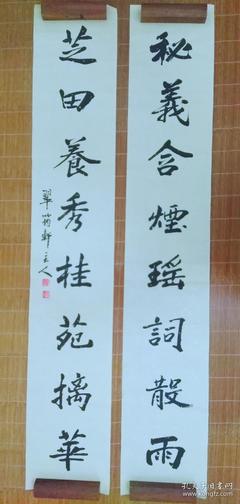 秘義含煙瑶詞散雨
芝田養秀桂苑摛華
翠筠軒主人
孔夫子旧书网